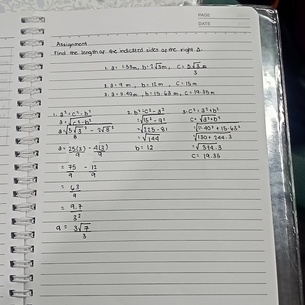 PAGE
DATE
Assignment
Find the length of the indicated sides of the right Δ.
2. a = 9 m, b = 12 m, c = 15 m
3. a = 11.40 m, b = 15.63 m, c = 19.35 m
1. a² = c² - b²
a = √c² - b²
= 75 - 12
9 9
= 63
9
= 9.7
3²
a = 3√7
3
2. b² = c² - a²
= √15² - 9²
= √225 - 81
= √144
b = 12
3. c² = a² + b²
c = √a² + b²
= √11.40² + 15.63²
= √130 + 244.3
= √374.3
c = 19.35